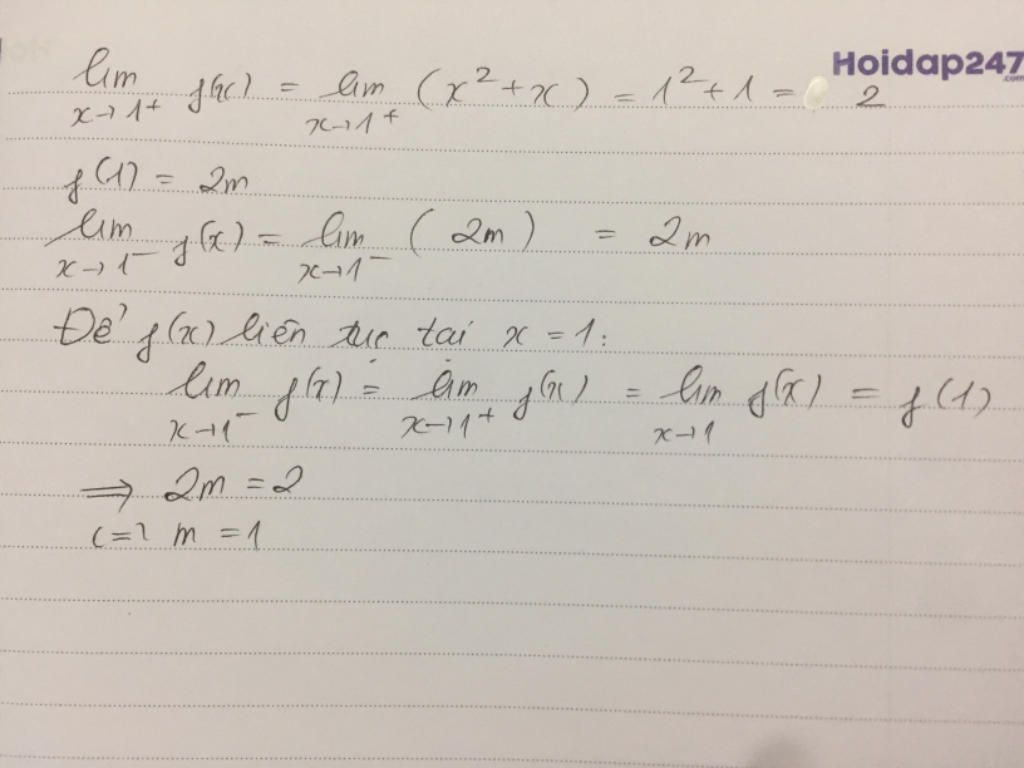 Hoidap247.com
lim x→1⁺ f(x) = lim x→1⁺ (x² + x) = 1² + 1 = 2
f(1) = 2m
lim x→1⁻ f(x) = lim x→1⁻ (2m) = 2m
Để f(x) liên tục tại x = 1:
lim x→1⁻ f(x) = lim x→1⁺ f(x) = lim x→1 f(x) = f(1)
⇒ 2m = 2
(=) m = 1